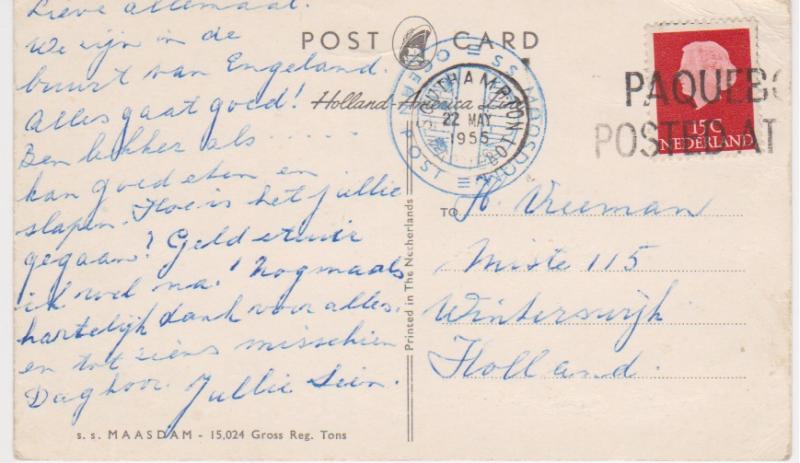 Lieve allemaal.
We zijn in de
buurt van Engeland.
Alles gaat goed!
Ben lekker als ......
kan goed eten en
slapen. Hoe is het jullie
gegaan? Geld
ik wel na! Nogmaals
hartelijk dank voor alles.
en tot ziens misschien
Dag hoor. Jullie Sien.
s. s. MAASDAM - 15,024 Gross Reg. Tons
POST CARD
Holland-America Line
Printed in The Netherlands
S.S. MAASDAM
OCEAN POST
SOUTHAMPTON
22 MAY
1955
PAQUEBO
POSTED AT
15C
NEDERLAND
TO H. Vreeman
Miste 115
Winterswijk
Holland.